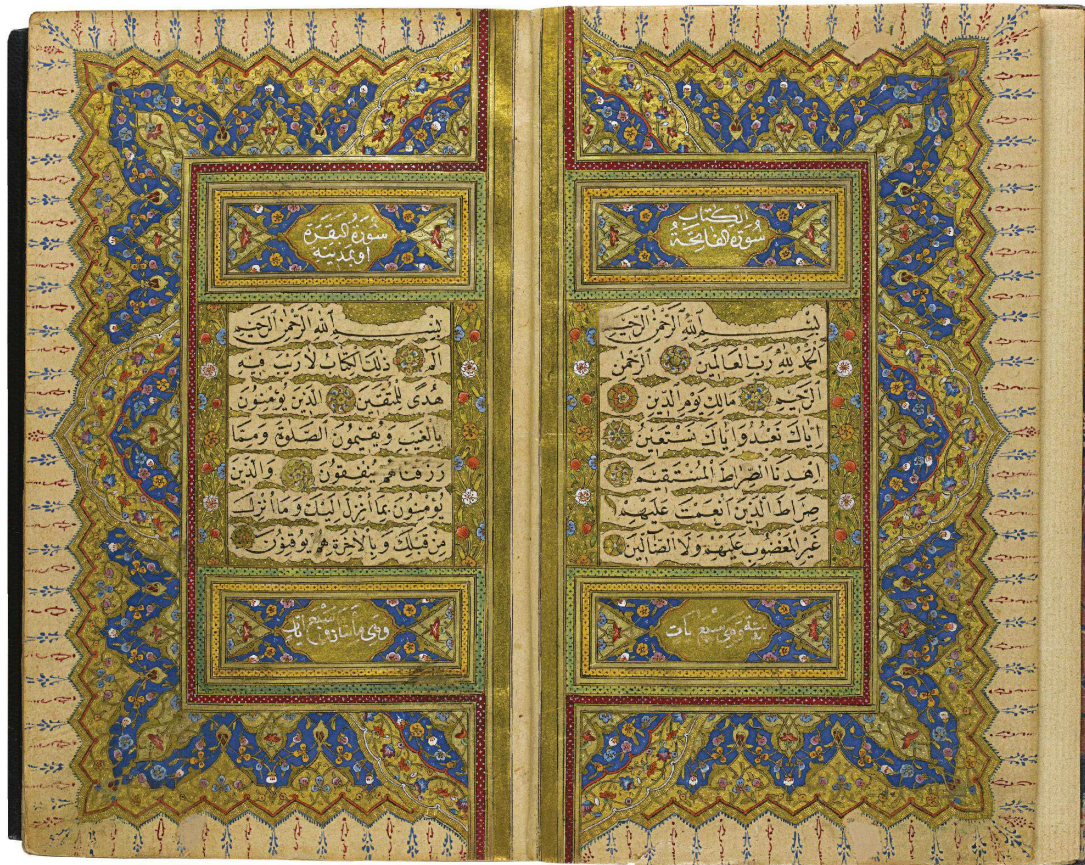 الكتاب
سورة الفاتحة
بسم الله الرحمن الرحيم
الحمد لله رب العالمين الرحمن
الرحيم مالك يوم الدين
اياك نعبد واياك نستعين
اهدنا الصراط المستقيم
صراط الذين انعمت عليهم
غير المغضوب عليهم ولا الضالين
وهي سبع ايات
سورة البقرة
بسم الله الرحمن الرحيم
الم ذلك الكتاب لا ريب فيه
هدى للمتقين الذين يؤمنون
بالغيب ويقيمون الصلوة ومما
رزقناهم ينفقون والذين
يؤمنون بما أنزل اليك وما أنزل
من قبلك وبالآخرة هم يوقنون
وهي مأتان